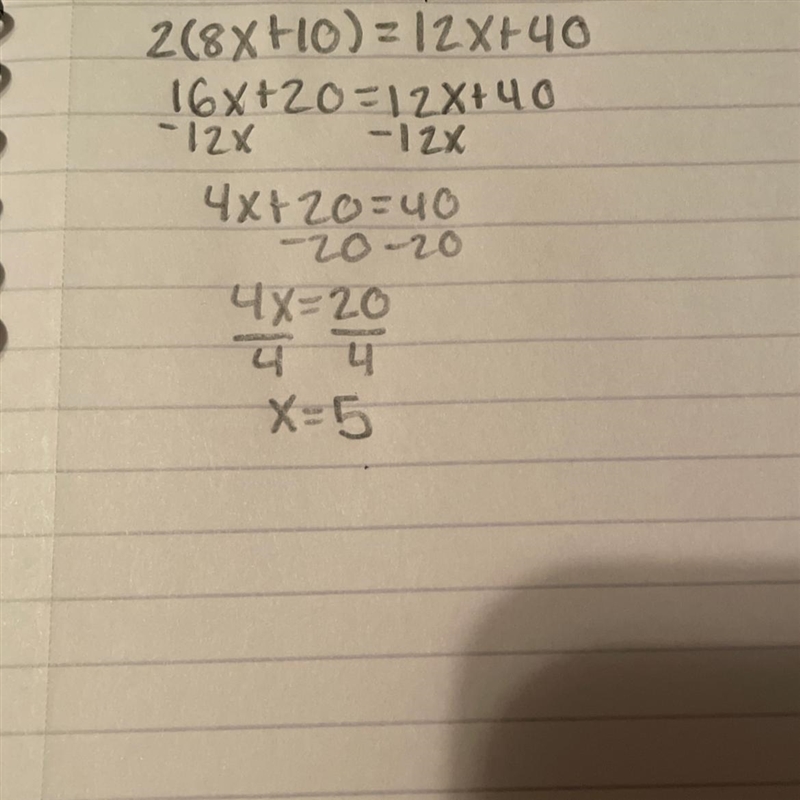 2(8x+10)=12x+40
16x+20=12x+40
-12x -12x
4x+20=40
-20 -20
4x=20
4 4
x=5